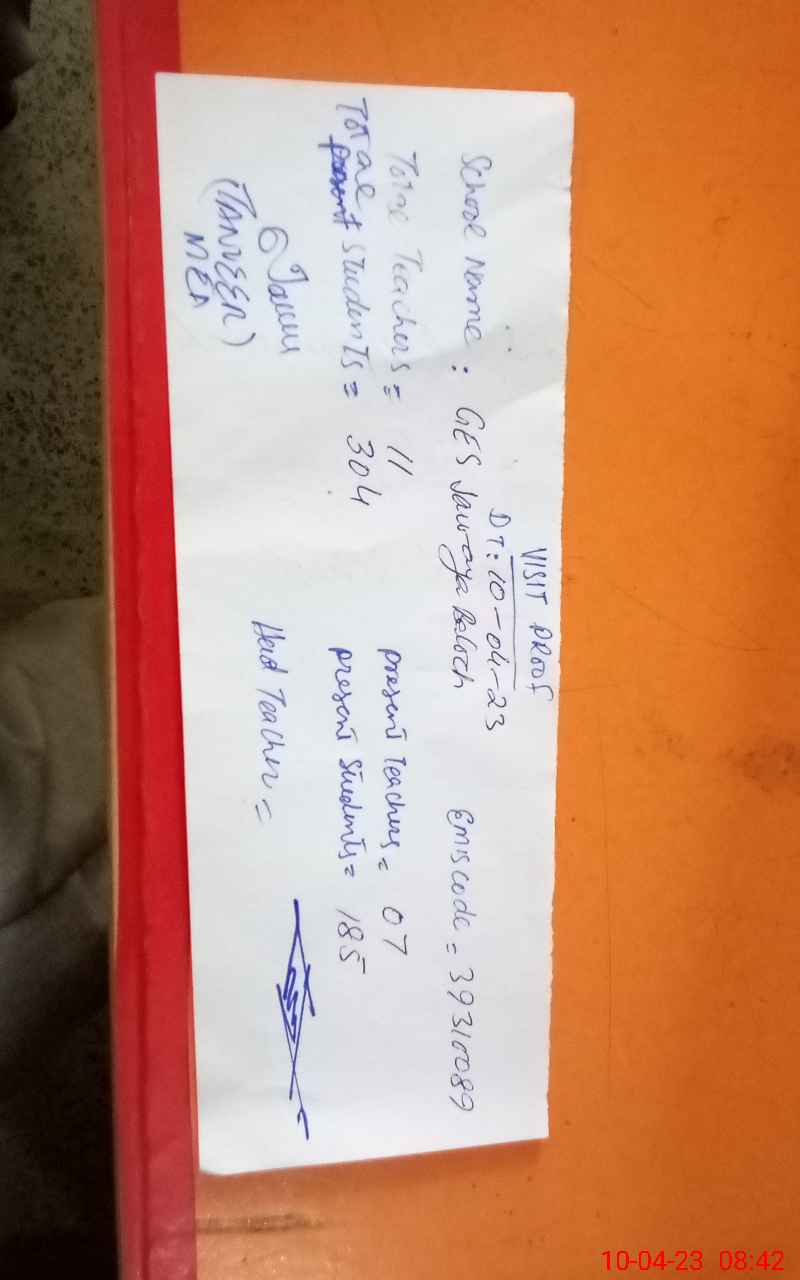 VISIT PROOF
DT: 10-04-23
School Name: GES Jawaya Baloch Emis code = 39310089
Total Teachers = 11 present Teachers = 07
Total Students = 304 present Students = 185
Head Teacher =
(TANVEER)
MEA
10-04-23 08:42